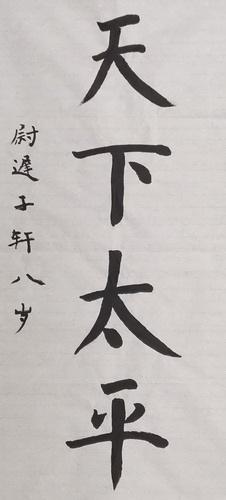 天下太平
尉遲子轩八岁